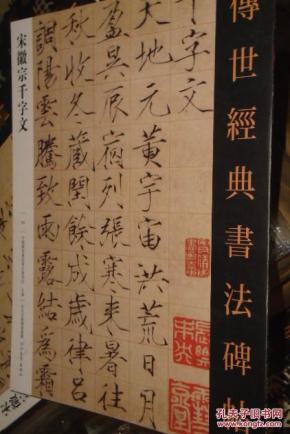 傳世經典書法碑帖
千字文
天地元黃宇宙洪荒日月
盈昃辰宿列張寒来暑往
秋收冬藏閏餘成歲律呂
調陽雲騰致雨露結為霜
宋徽宗千字文
孔夫子旧书网